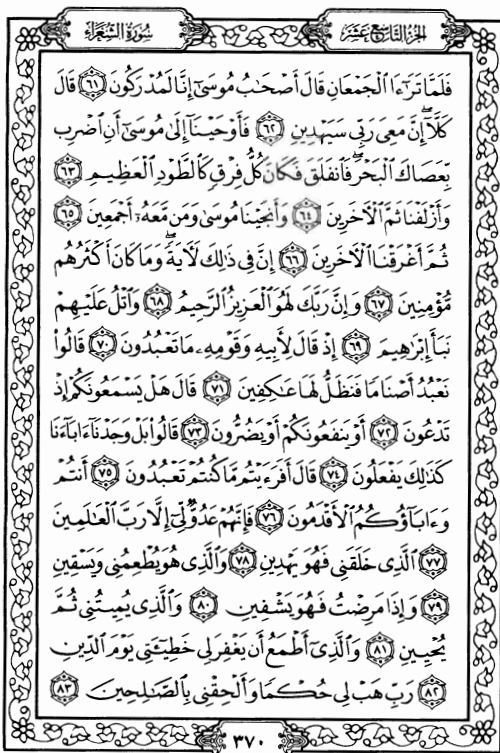 سُورَةُ الشُّعَرَاءِ
الجُزْءُ التَّاسِعَ عَشَرَ
فَلَمَّا تَرَٰٓءَا ٱلْجَمْعَانِ قَالَ أَصْحَٰبُ مُوسَىٰٓ إِنَّا لَمُدْرَكُونَ ٦١ قَالَ
كَلَّآ إِنَّ مَعِىَ رَبِّى سَيَهْدِينِ ٦٢ فَأَوْحَيْنَآ إِلَىٰ مُوسَىٰٓ أَنِ ٱضْرِب
بِّعَصَاكَ ٱلْبَحْرَ ۖ فَٱنفَلَقَ فَكَانَ كُلُّ فِرْقٍ كَٱلطَّوْدِ ٱلْعَظِيمِ ٦٣
وَأَزْلَفْنَا ثَمَّ ٱلْءَاخَرِينَ ٦٤ وَأَنجَيْنَا مُوسَىٰ وَمَن مَّعَهُۥٓ أَجْمَعِينَ ٦٥
ثُمَّ أَغْرَقْنَا ٱلْءَاخَرِينَ ٦٦ إِنَّ فِى ذَٰلِكَ لَءَايَةً ۖ وَمَا كَانَ أَكْثَرُهُم
مُّؤْمِنِينَ ٦٧ وَإِنَّ رَبَّكَ لَهُوَ ٱلْعَزِيزُ ٱلرَّحِيمُ ٦٨ وَٱتْلُ عَلَيْهِمْ
نَبَأَ إِبْرَٰهِيمَ ٦٩ إِذْ قَالَ لِأَبِيهِ وَقَوْمِهِۦ مَا تَعْبُدُونَ ٧٠ قَالُوا۟
نَعْبُدُ أَصْنَامًا فَنَظَلُّ لَهَا عَٰكِفِينَ ٧١ قَالَ هَلْ يَسْمَعُونَكُمْ إِذْ
تَدْعُونَ ٧٢ أَوْ يَنفَعُونَكُمْ أَوْ يَضُرُّونَ ٧٣ قَالُوا۟ بَلْ وَجَدْنَآ ءَابَآءَنَا
كَذَٰلِكَ يَفْعَلُونَ ٧٤ قَالَ أَفَرَءَيْتُم مَّا كُنتُمْ تَعْبُدُونَ ٧٥ أَنتُمْ
وَءَابَآؤُكُمُ ٱلْأَقْدَمُونَ ٧٦ فَإِنَّهُمْ عَدُوٌّ لِّىٓ إِلَّا رَبَّ ٱلْعَٰلَمِينَ
٧٧ ٱلَّذِى خَلَقَنِى فَهُوَ يَهْدِينِ ٧٨ وَٱلَّذِى هُوَ يُطْعِمُنِى وَيَسْقِينِ
٧٩ وَإِذَا مَرِضْتُ فَهُوَ يَشْفِينِ ٨٠ وَٱلَّذِى يُمِيتُنِى ثُمَّ
يُحْيِينِ ٨١ وَٱلَّذِىٓ أَطْمَعُ أَن يَغْفِرَ لِى خَطِيٓـَٔتِى يَوْمَ ٱلدِّينِ
٨٢ رَبِّ هَبْ لِى حُكْمًا وَأَلْحِقْنِى بِٱلصَّٰلِحِينَ ٨٣
٣٧٠